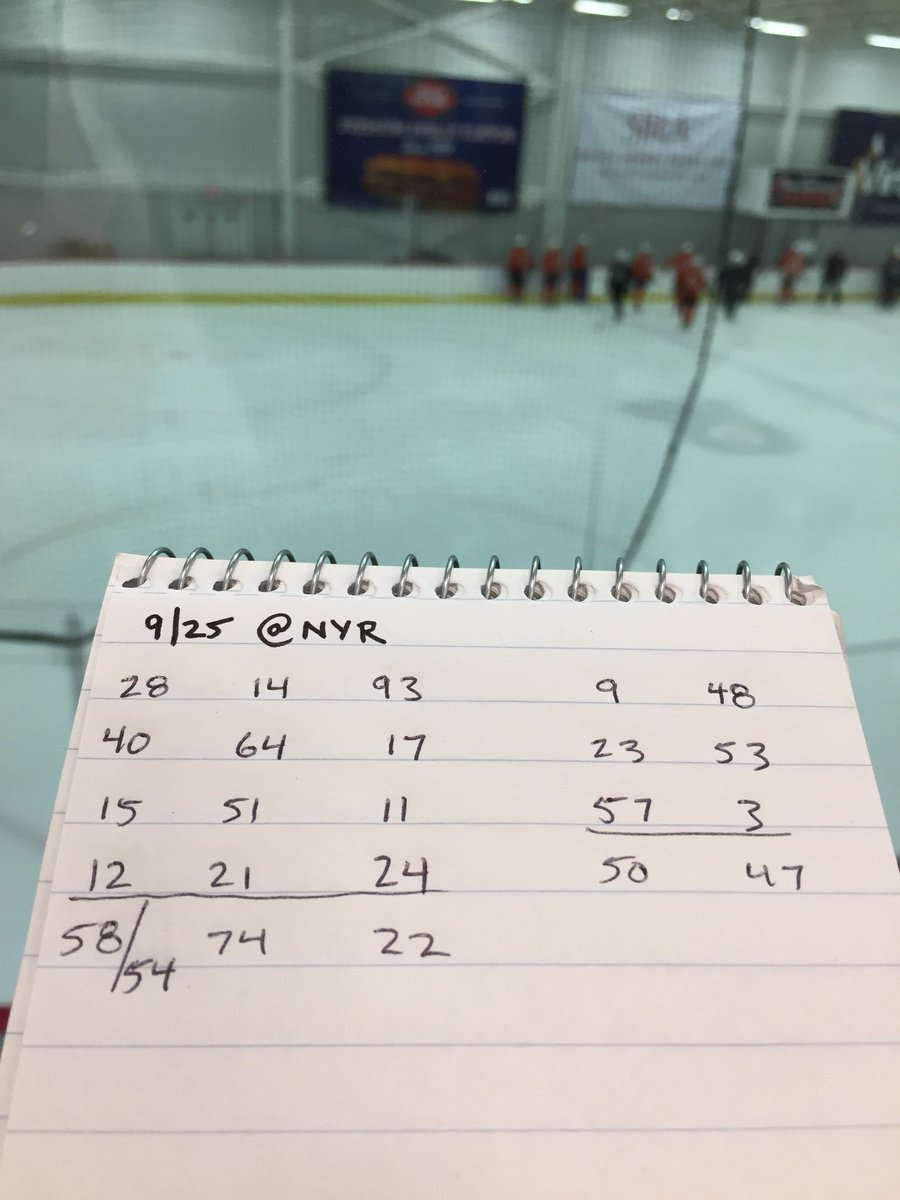 9/25 @NYR
28 14 93 9 48
40 64 17 23 53
15 51 11 57 3
12 21 24 50 47
58/54 74 22